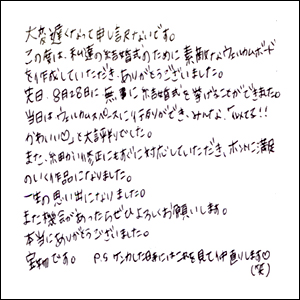 大変遅くなって申し訳ないです。
この度は、私達の結婚式のために素敵なウェルカムボード
を作成していただき、ありがとうございました。
先日、8月28日に無事に結婚式を挙げることができました。
当日は、ウェルカムスペースに行列ができ、みんな、「似てる!!
かわいい♡」と大評判でした。
また、細かい修正にもすぐに対応していただき、ホントに満足
のいく作品になりました。
一生の思い出になりました。
また機会があったらぜひよろしくお願いします。
本当にありがとうございました。
宝物です。 P.S ケンカした時にはこれを見て仲直りします♡
(笑)